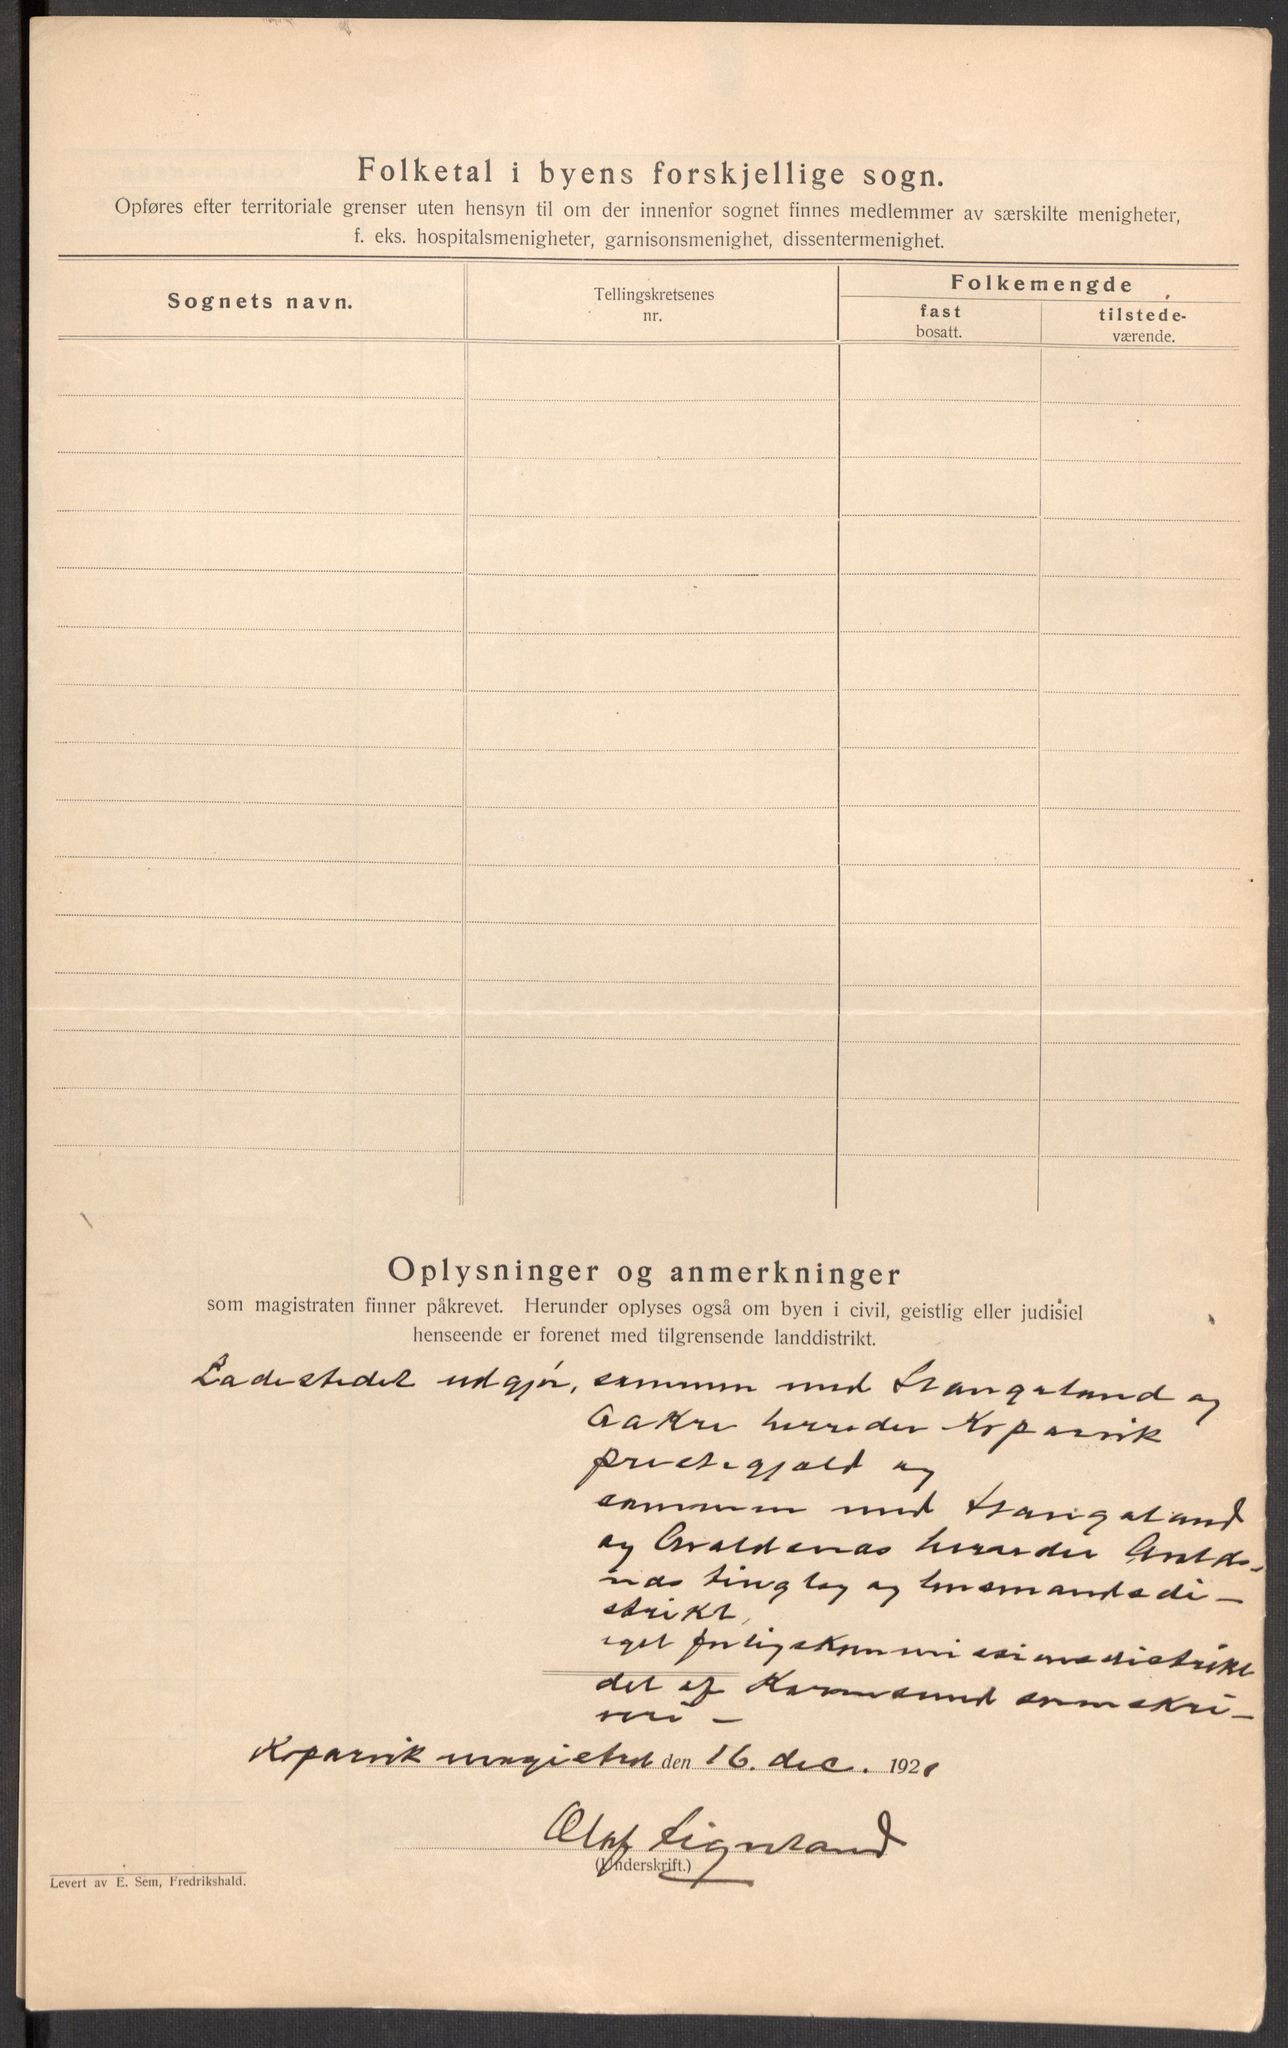 Folketal i byens forskjellige sogn.
Opføres efter territoriale grenser uten hensyn til om der innenfor sognet finnes medlemmer av særskilte menigheter,
f. eks. hospitalsmenigheter, garnisonsmenighet, dissentermenighet.
Sognets navn.
Tellingskretsenes
nr.
Folkemengde
fast
bosatt.
tilstede-
værende.
Oplysninger og anmerkninger
som magistraten finner påkrevet. Herunder oplyses også om byen i civil, geistlig eller judisiel
henseende er forenet med tilgrensende landdistrikt.
Ladestedet udgjør, sammen med Stangaland og
Aakre herreder Kopervik
prestegjæld og
sammen med Stangaland
og Avaldsnes herreder Avalds-
nes tinglag og lensmandsdi-
strikt,
eget forligskommissionsdistrikt
del af Karmsund sorenskri-
veri -
Kopervik magistrat den 16. dec. 1921
Olaf
(Underskrift.)
Levert av E. Sem, Fredrikshald.